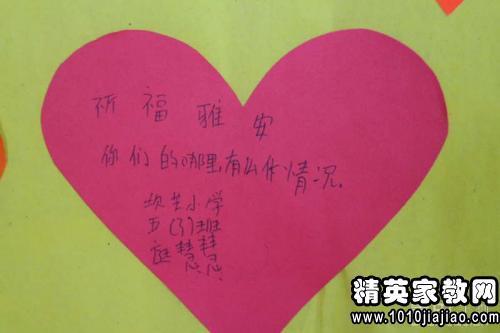 祈福雅安
你们的哪里有么什情况.
小学
五(3)班
慧慧
精英家教网
www.1010jiajiao.com